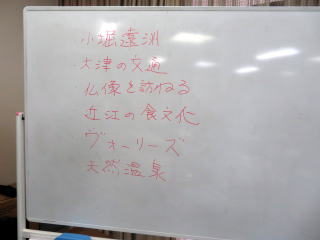 小堀遠洲
大津の交通
仏像を訪ねる
近江の食文化
ヴォーリーズ
天然温泉